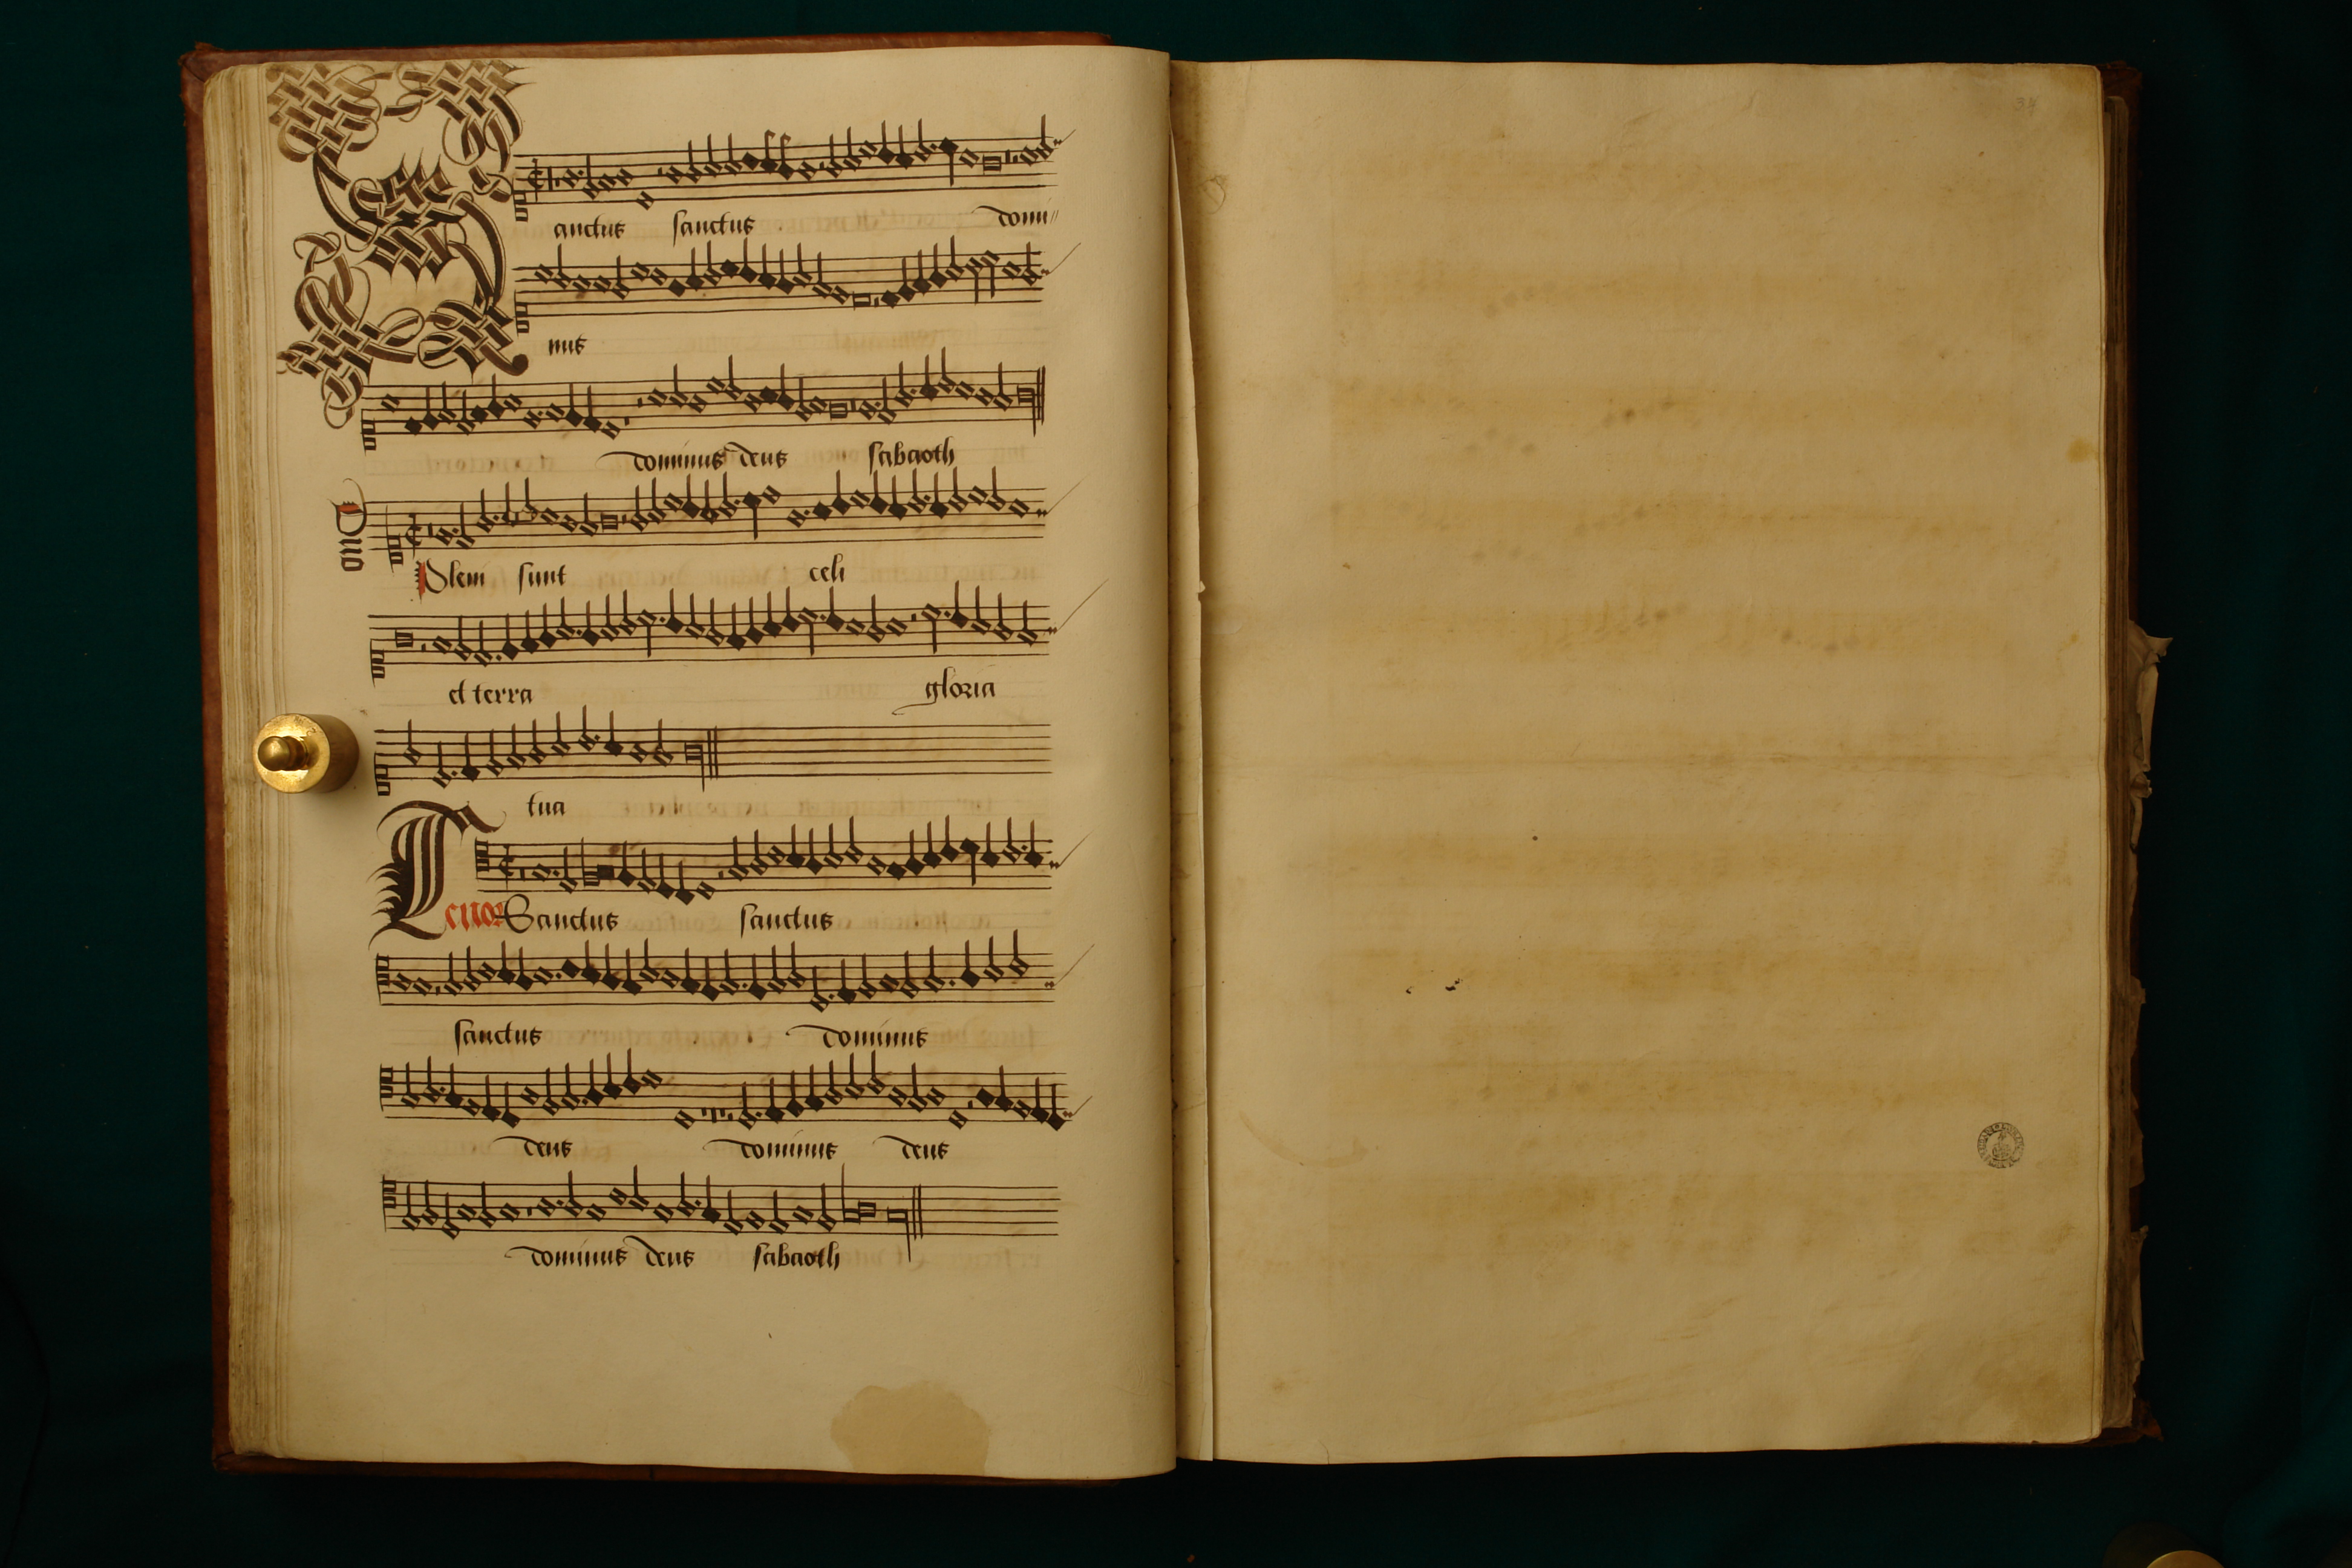 Sanctus sanctus domi
nus
dominus deus sabaoth
Duo
Pleni sunt celi
et terra gloria
tua
Tenor Sanctus sanctus
sanctus dominus
deus dominus deus
dominus deus sabaoth